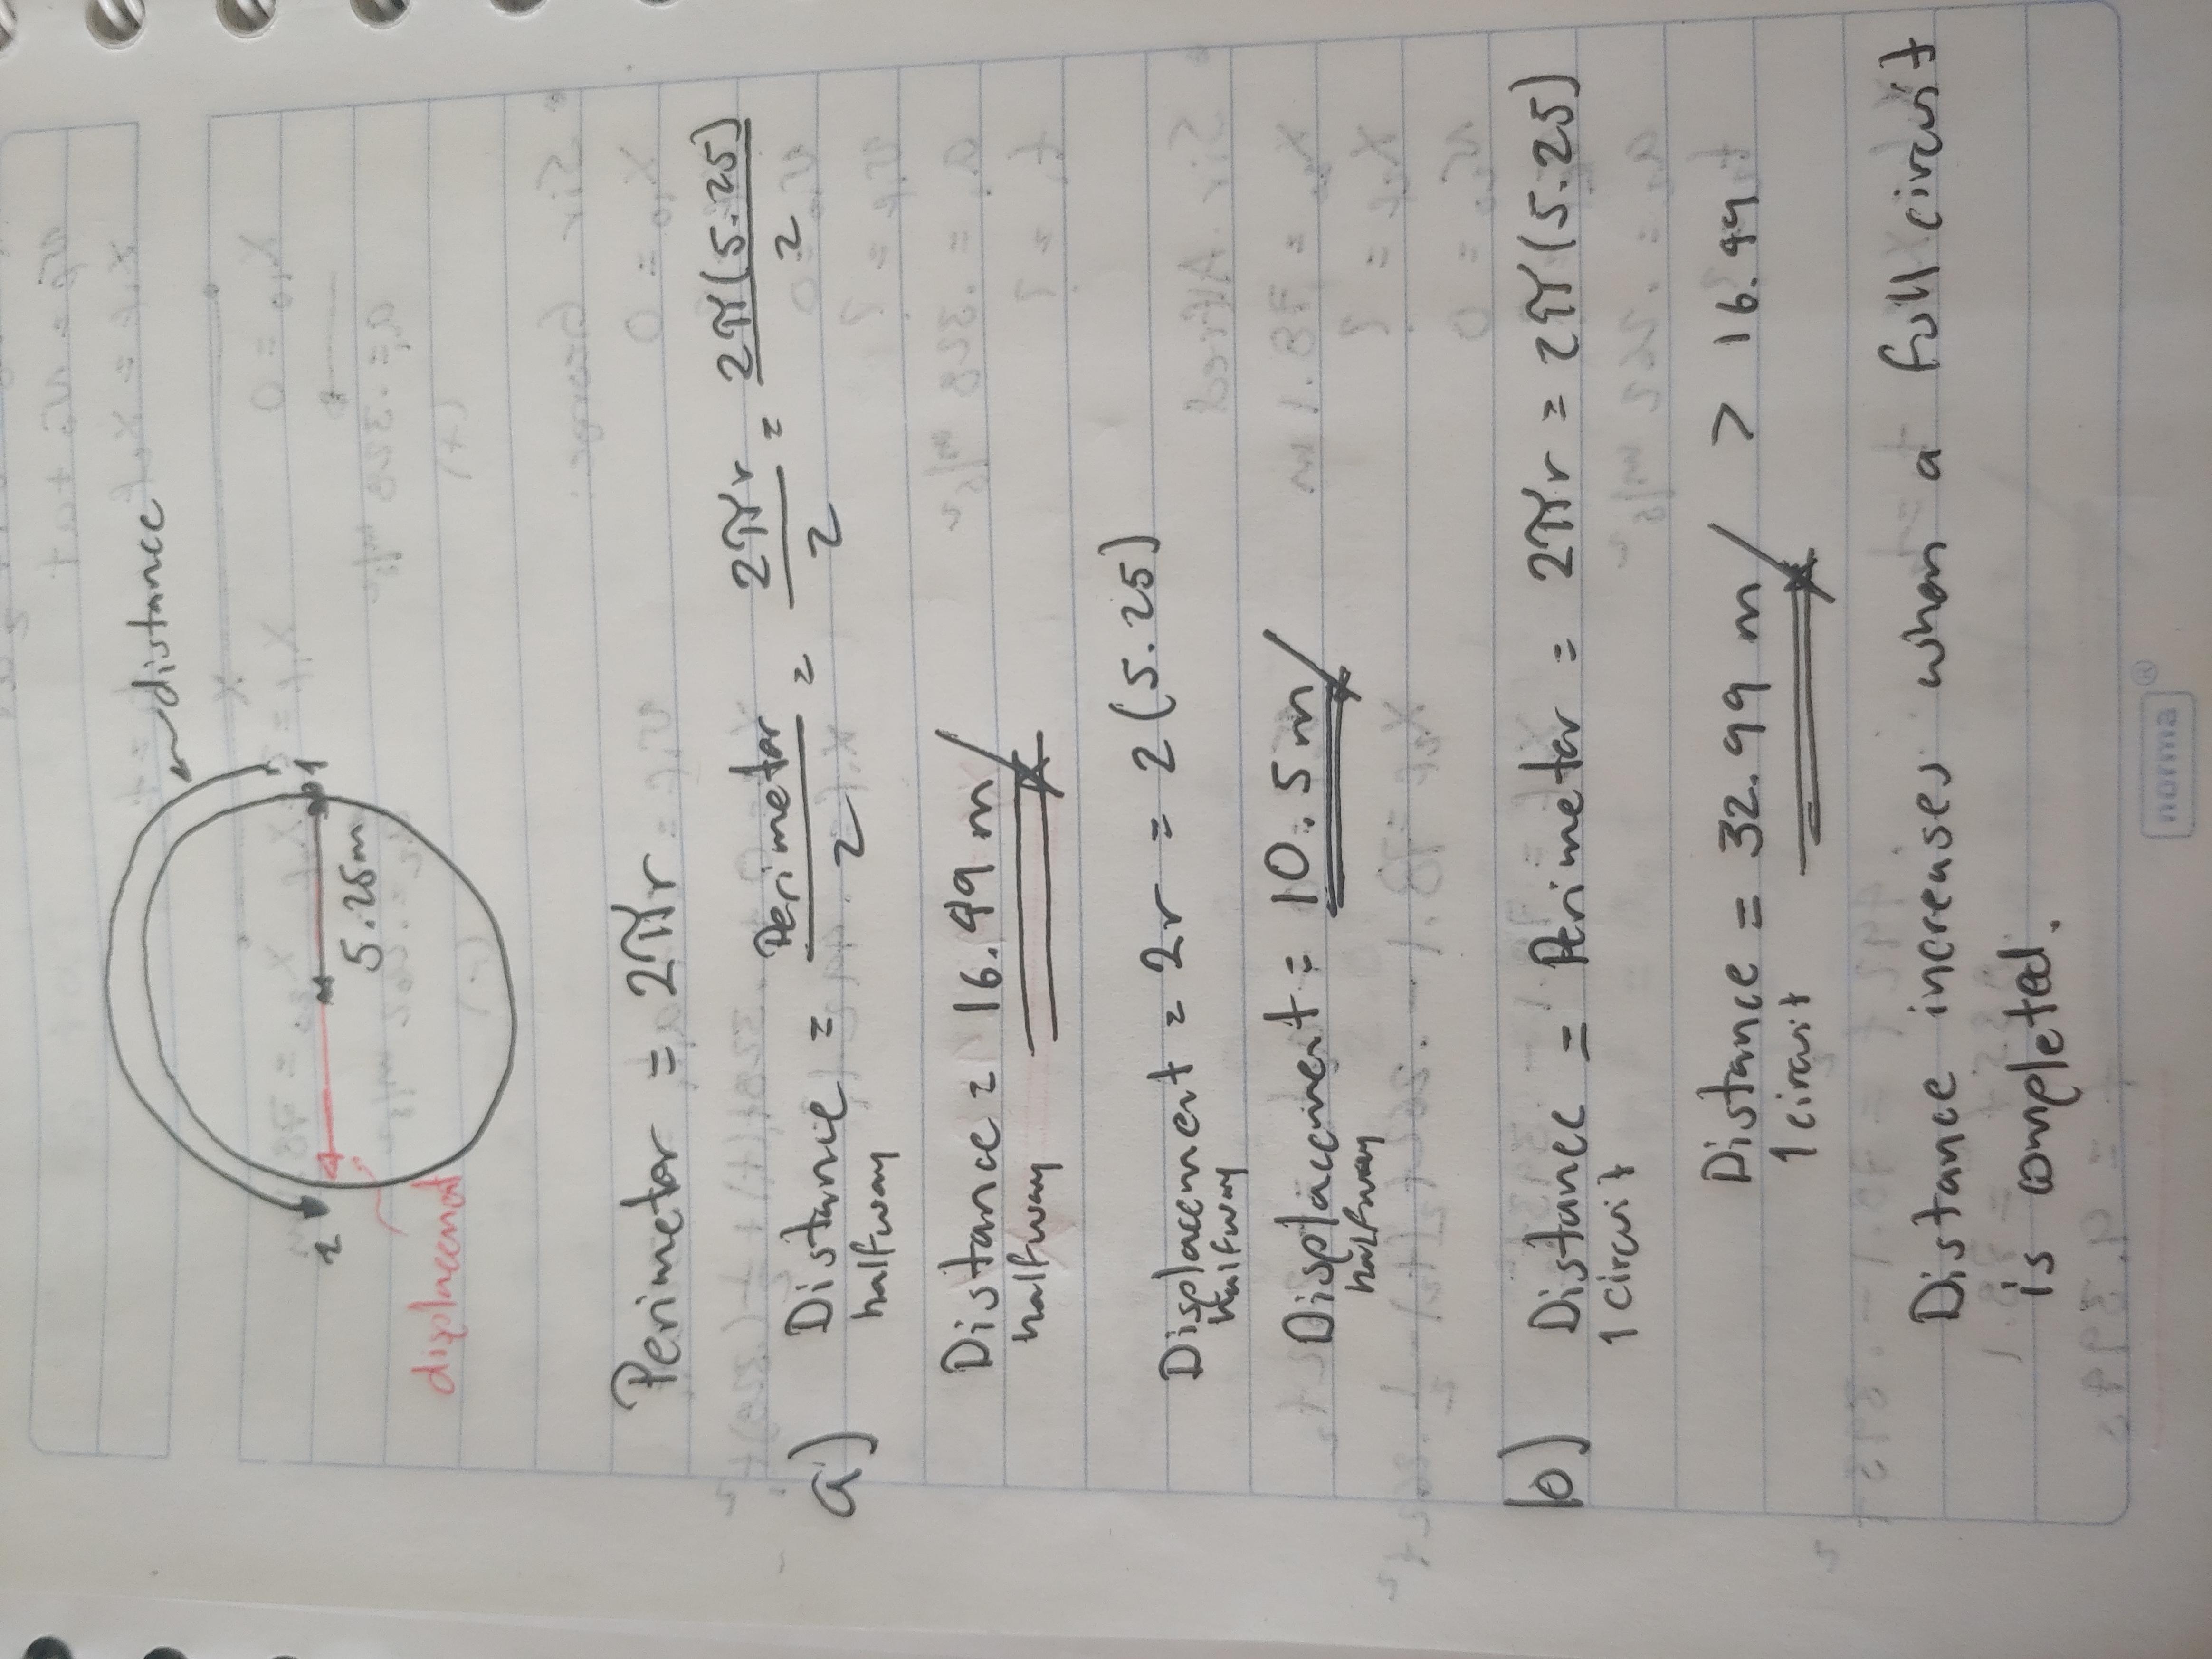 distance
1
5.25m
2
displacement
Perimeter = 2πr
a) Distance halfway = Perimeter/2 = 2πr/2 = 2π(5.25)/2
Distance halfway = 16.49 m
Displacement halfway = 2r = 2(5.25)
Displacement halfway = 10.5 m
b) Distance 1 circuit = Perimeter = 2πr = 2π(5.25)
Distance 1 circuit = 32.99 m > 16.49
Distance increases when a full circuit
is completed.
norma®